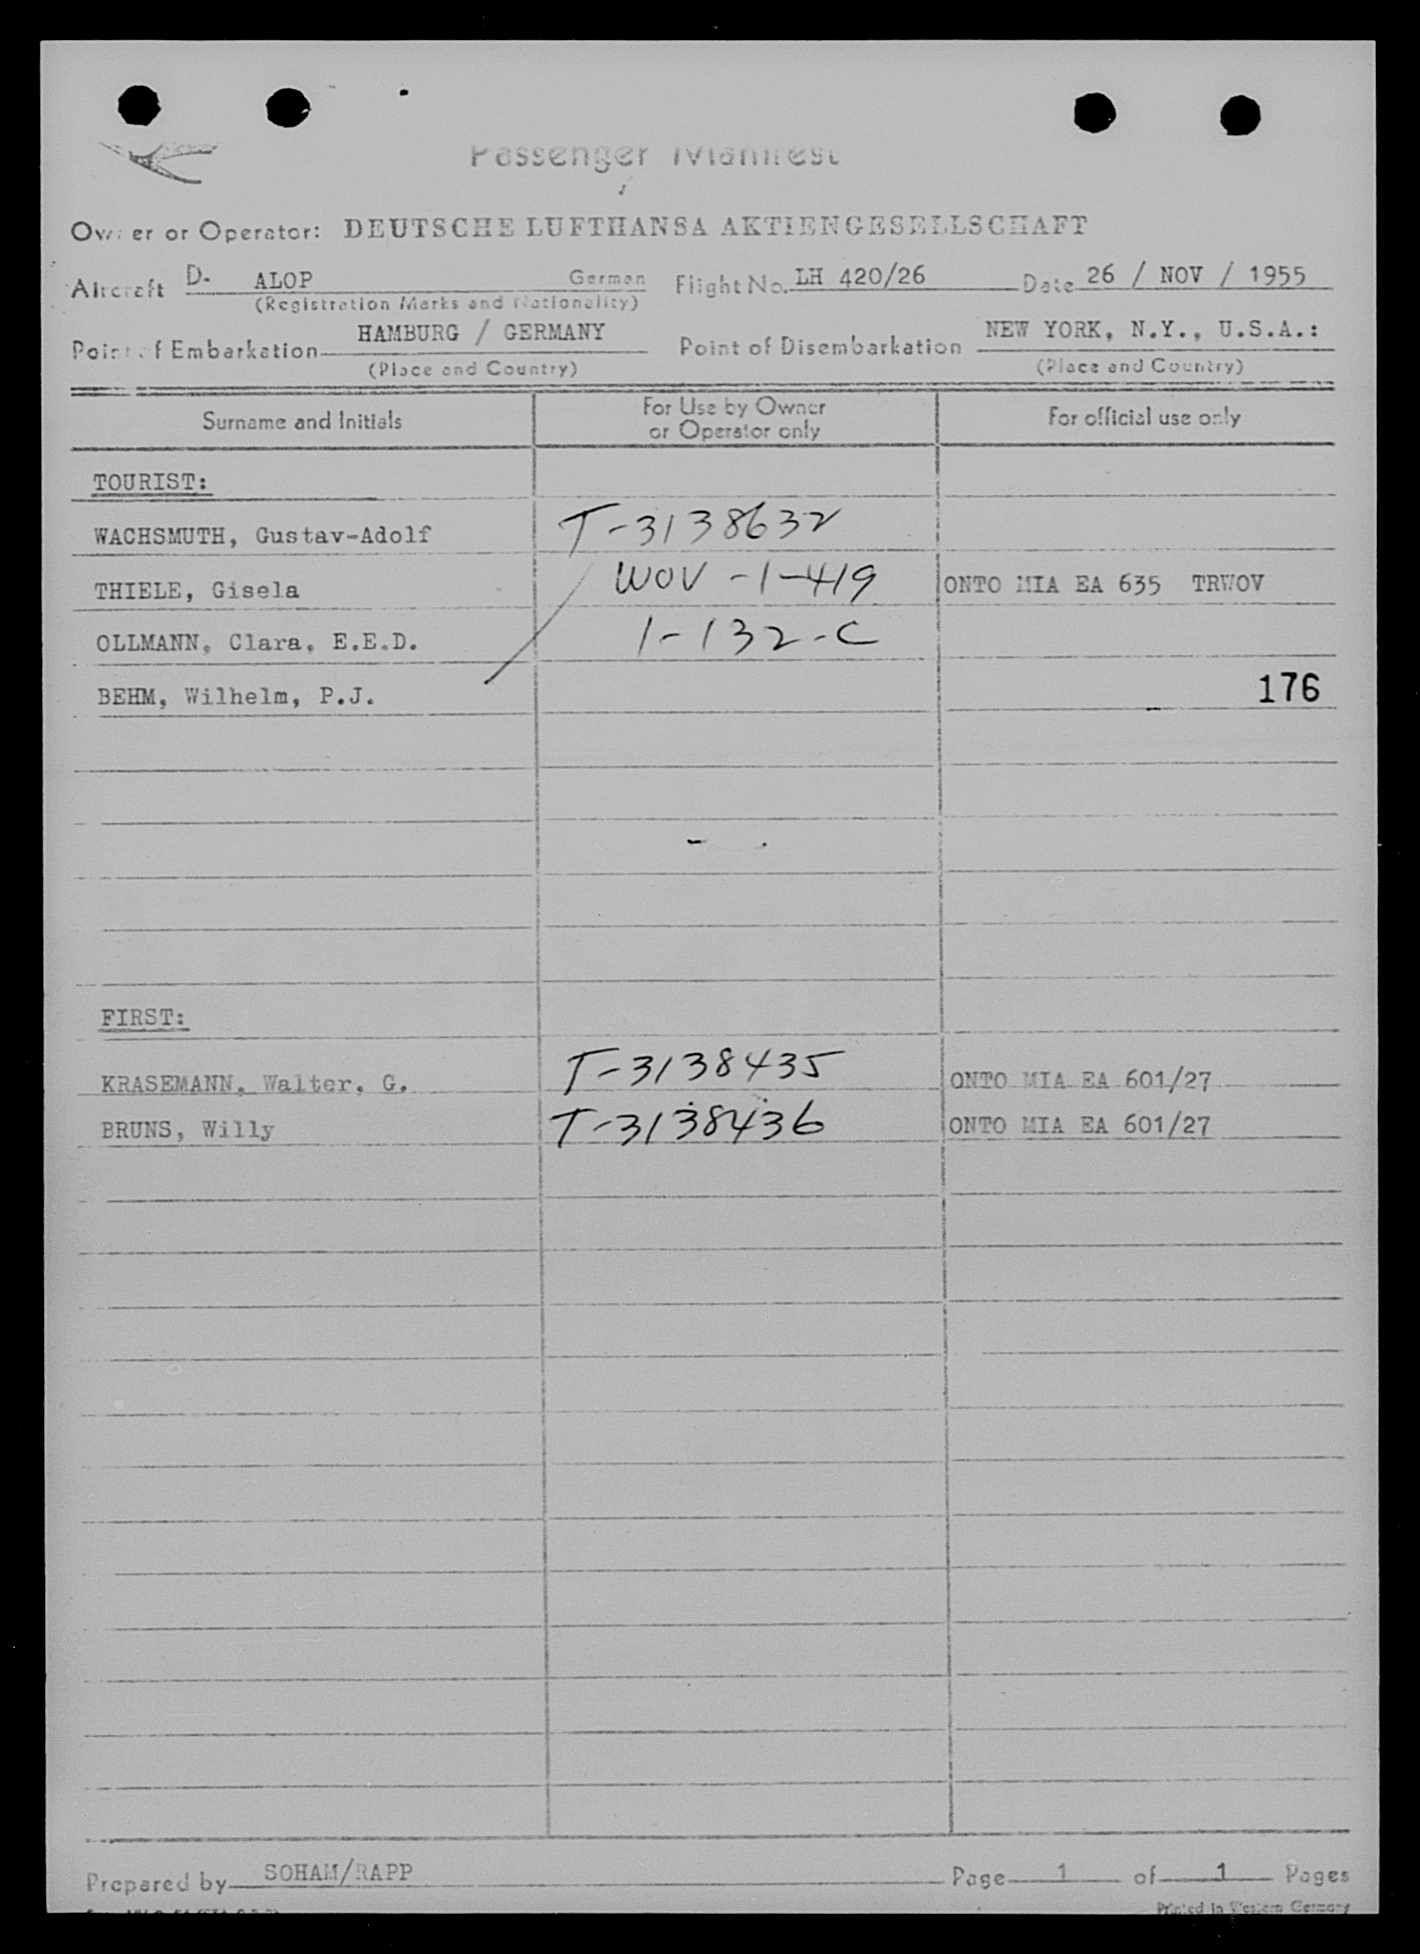 Passenger Manifest
Owner or Operator: DEUTSCHE LUFTHANSA AKTIENGESELLSCHAFT
Aircraft D- ALOP German Flight No. LH 420/26 Date 26 / NOV / 1955
(Registration Marks and Nationality)
Point of Embarkation HAMBURG / GERMANY Point of Disembarkation NEW YORK, N.Y., U.S.A.:
(Place and Country) (Place and Country)
Surname and Initials For Use by Owner or Operator only For official use only
TOURIST:
WACHSMUTH, Gustav-Adolf T-3138632
THIELE, Gisela WOV-1-419 ONTO MIA EA 635 TRWOV
OLLMANN, Clara, E.E.D. 1-132-C
BEHM, Wilhelm, P.J. 176
FIRST:
KRASEMANN, Walter, G. T-3138435 ONTO MIA EA 601/27
BRUNS, Willy T-3138436 ONTO MIA EA 601/27
Prepared by SOHAM/RAPP Page 1 of 1 Pages
Printed in Western Germany